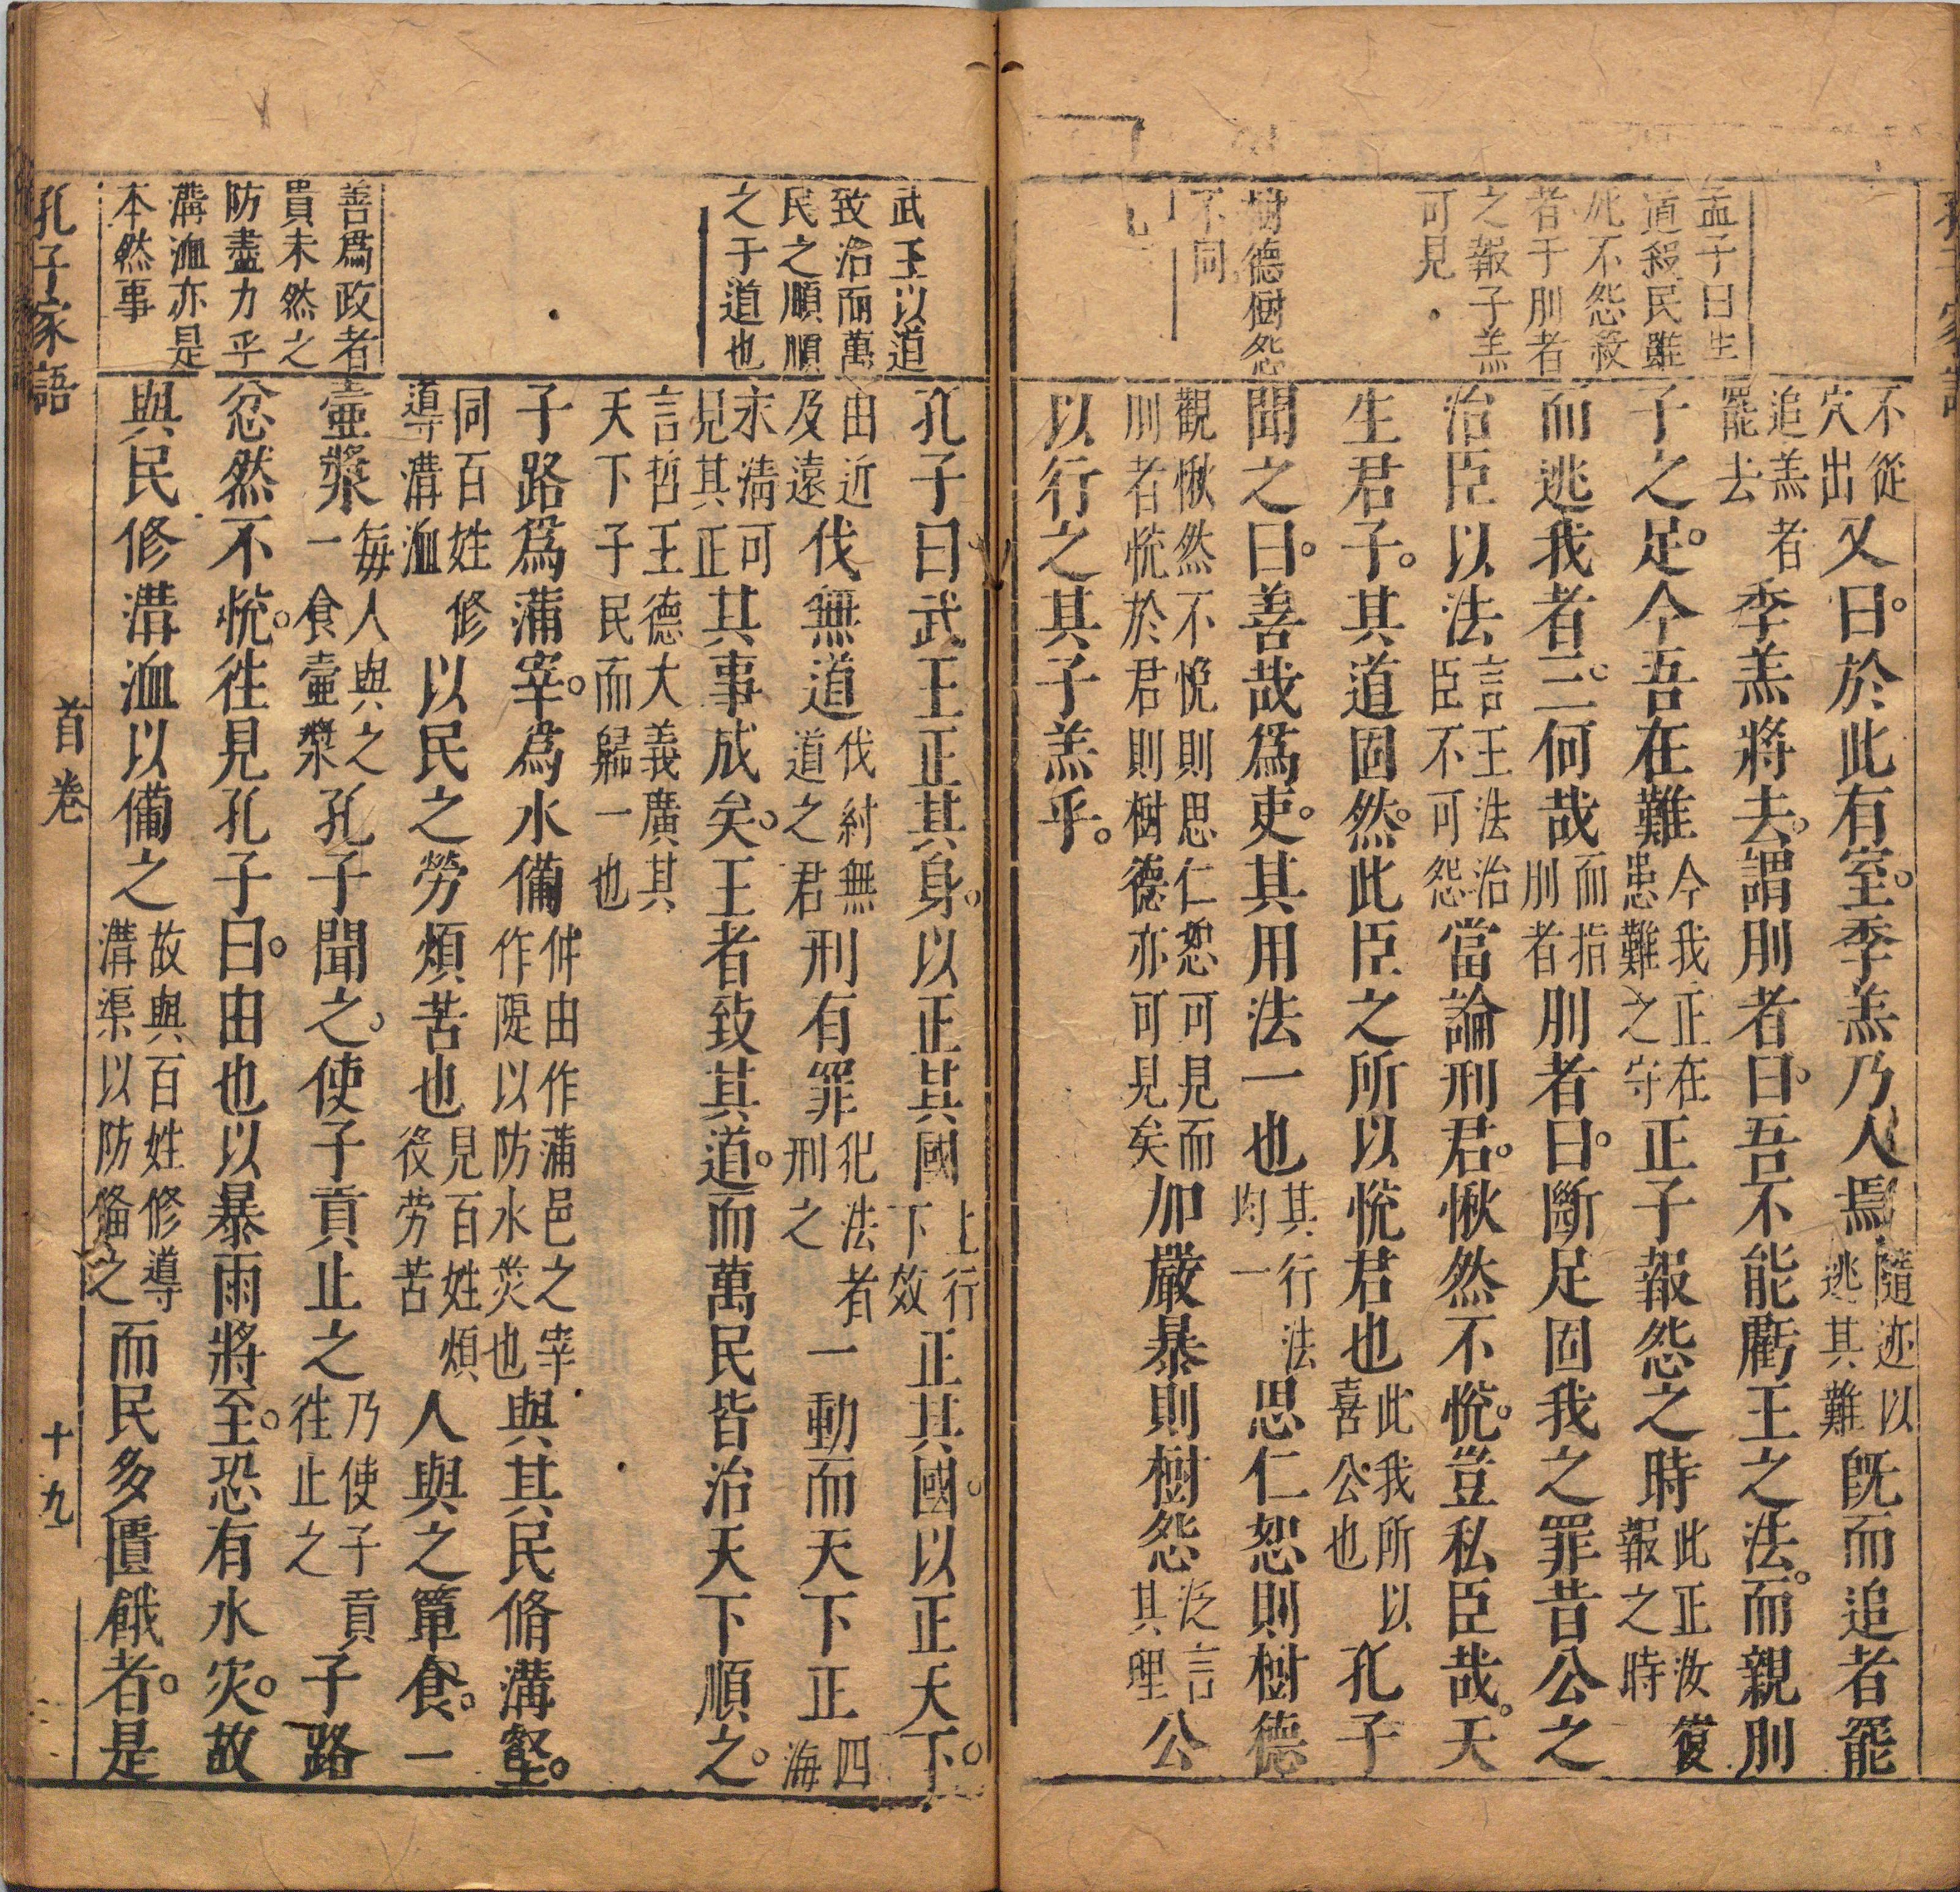 孟子曰生
道殺民雖
死不怨殺
者于刖者
之報子羔
可見
樹德樹怨
不同
不從
穴出
又曰。於此有室。季羔乃入焉
隨迹以
逃其難
既而追者罷
追羔者
罷去
季羔將去。謂刖者曰。吾不能虧王之法。而親刖
子之足。今吾在難
今我正在
患難之守
正子報怨之時
此正汝復
報之時
而逃我者三。何哉
而指
刖者
刖者曰。斷足固我之罪昔公之
治臣以法
言王法治
臣不可怨
當論刑君。愀然不悅。豈私臣哉。天
生君子。其道固然。此臣之所以悅君也
此我所以
喜公也
孔子
聞之曰。善哉爲吏。其用法一也
其行法
均一
思仁恕則樹德
觀愀然不悅則思仁恕可見而
刖者悅於君則樹德亦可見矣
加嚴暴則樹怨
泛言
其理
公
以行之其子羔乎。
武王以道
致治而萬
民之順順
之于道也
孔子曰武王正其身。以正其國
上行
下效
正其國。以正天下。
由近
及遠
伐無道
伐紂無
道之君
刑有罪
犯法者
刑之
一動而天下正
四
海
永淸可
見其正
其事成矣。王者致其道。而萬民皆治天下順之。
言哲王德大義廣其
天下子民而歸一也
子路爲蒲宰。爲水備
仲由作蒲邑之宰
作隄以防水災也
與其民脩溝壑。
同百姓修
導溝洫
以民之勞煩苦也
見百姓煩
役劳苦
人與之簞食。一
善爲政者
貴未然之
防盡力乎
溝洫亦是
本然事
壷漿
每人與之
一食壷漿
孔子聞之。使子貢止之
乃使子貢
徃止之
子路
忿然不悅。徃見孔子曰。由也以暴雨將至。恐有水灾。故
與民修溝洫以備之
故與百姓修導
溝渠以防備之
而民多匱餓者。是
孔子家語
首卷
十九